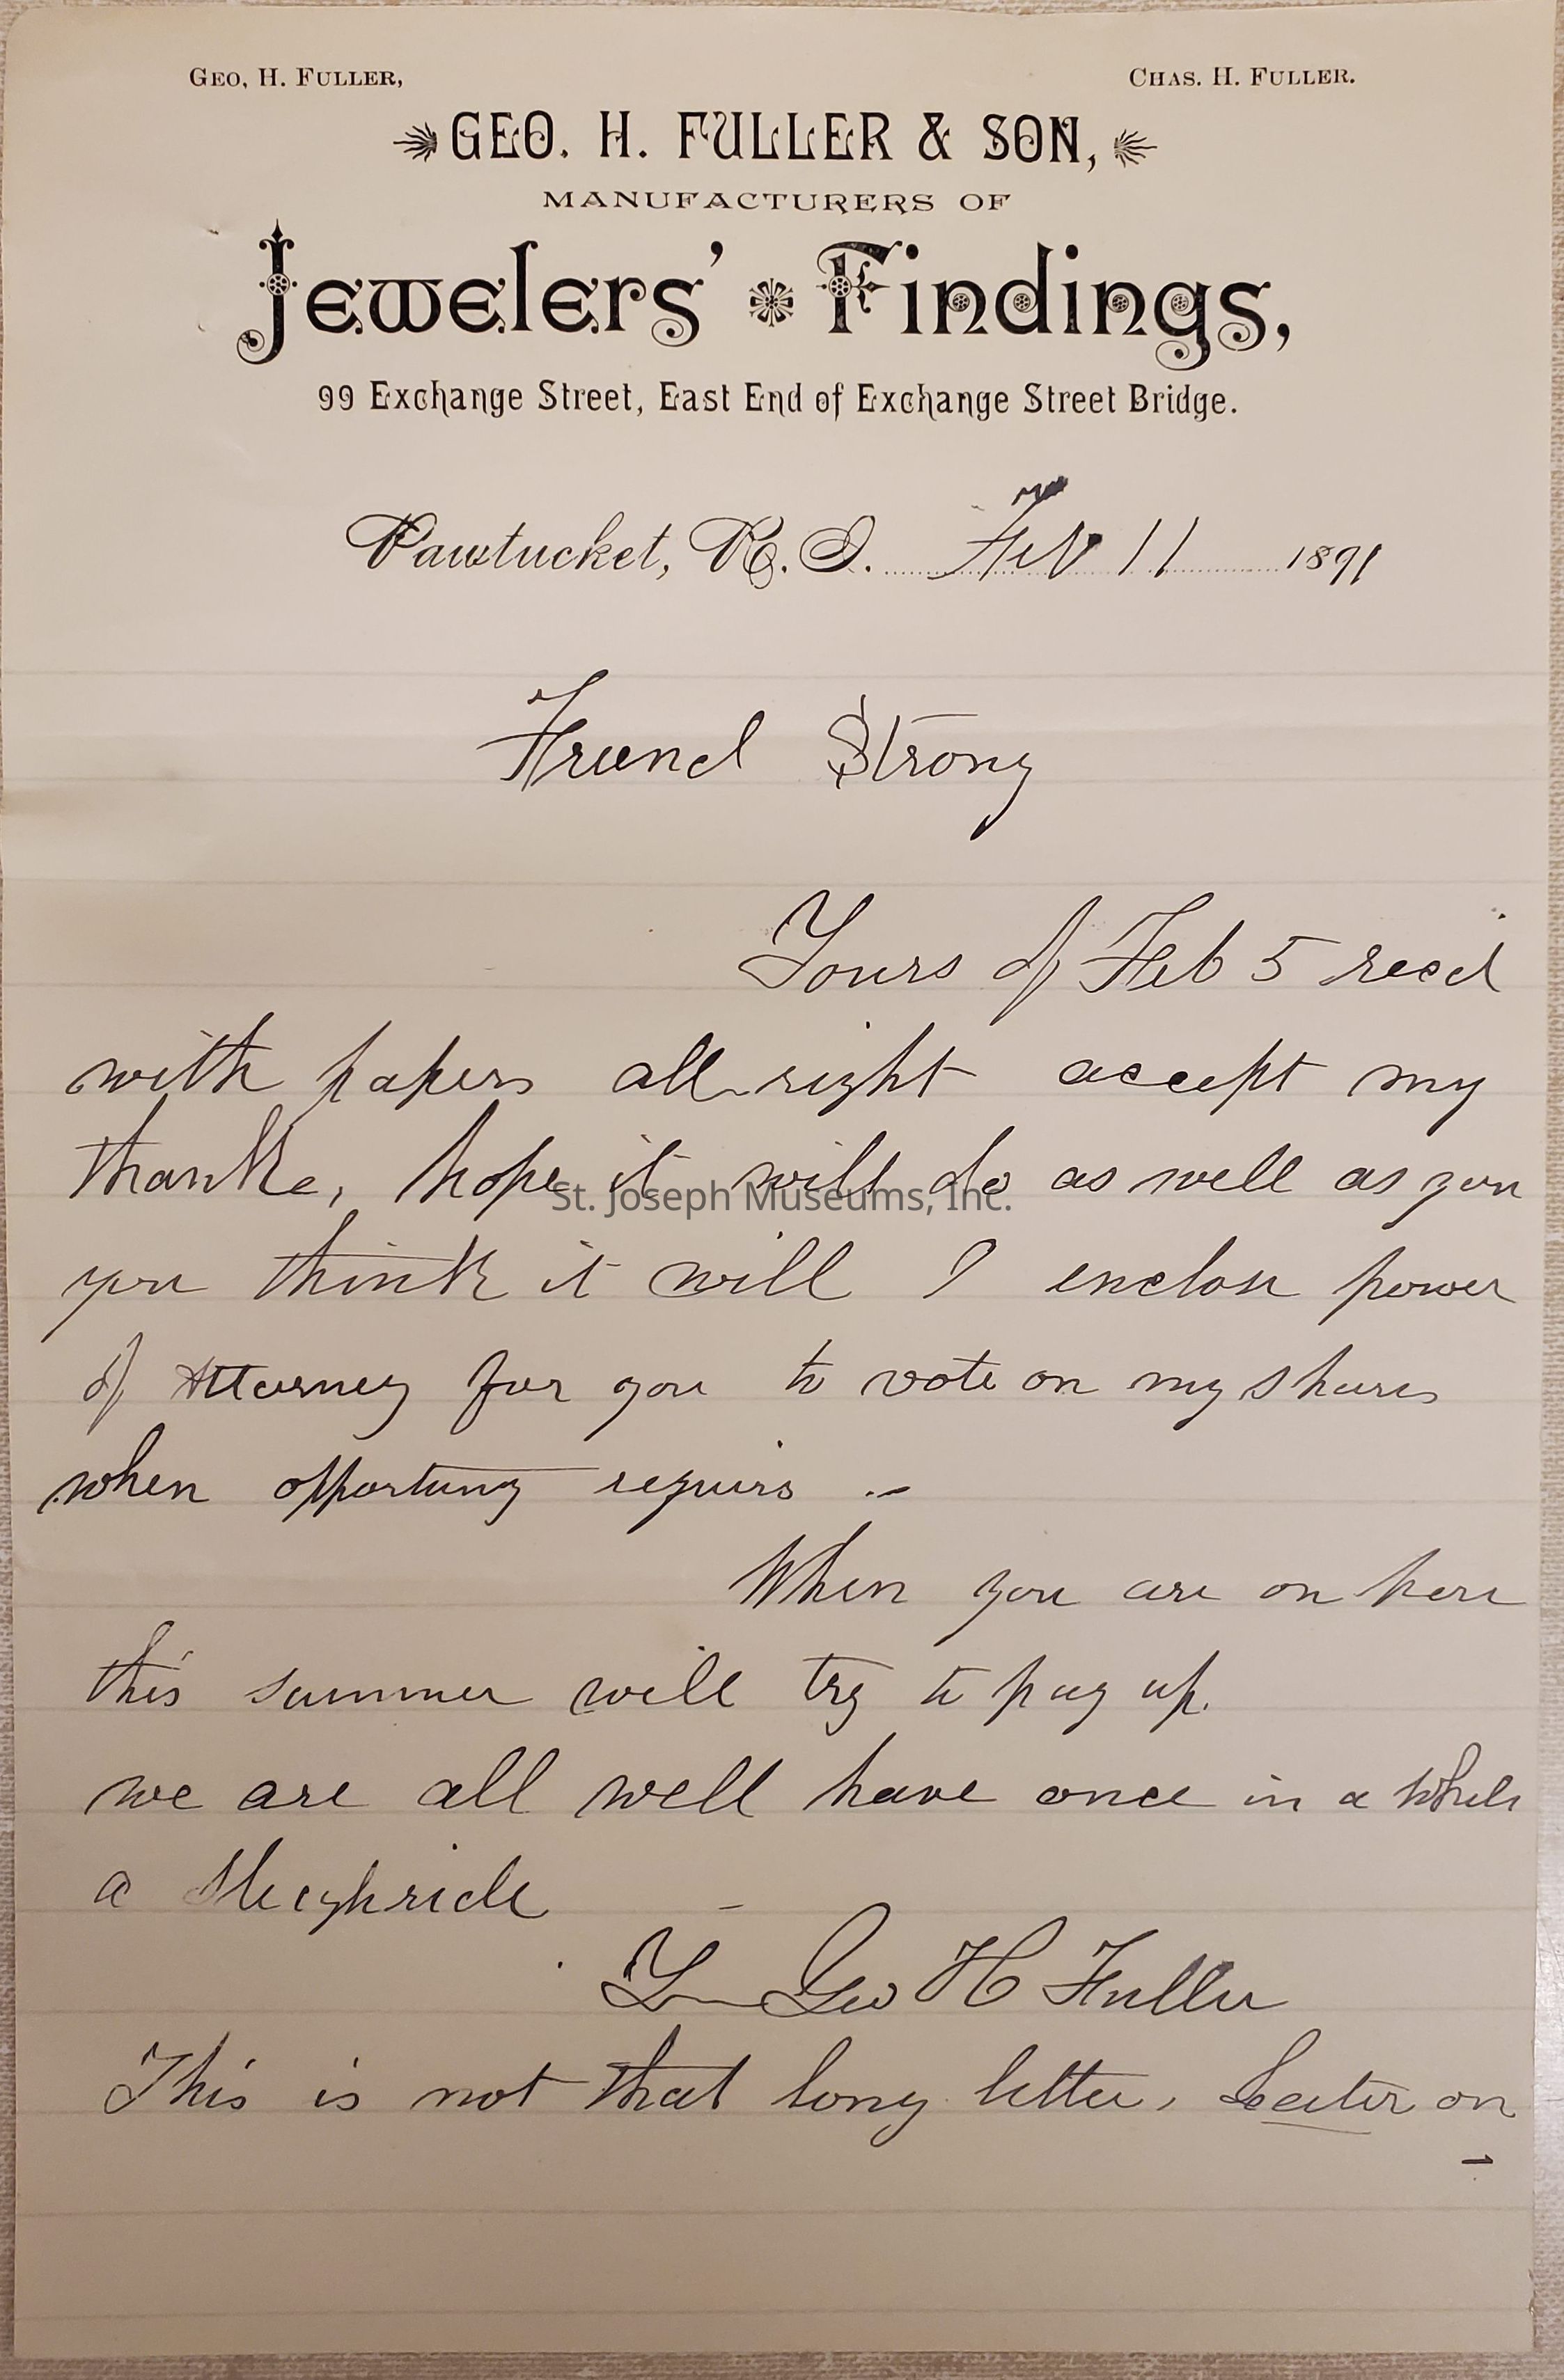 GEO. H. FULLER, CHAS. H. FULLER.
GEO. H. FULLER & SON,
MANUFACTURERS OF
Jewelers' Findings,
99 Exchange Street, East End of Exchange Street Bridge.
Pawtucket, R. I. Feb 11 1891
Friend Strong
Yours of Feb 5 recd
with papers all right accept my
thanks, hope it will do as well as you
St. Joseph Museums, Inc.
you think it will I enclose power
of Attorney for you to vote on my shares
when opportuny requirs
When you are on here
this summer will try to pay up.
we are all well have once in a while
a Sleighride
Geo H Fuller
This is not that long letter, Later on